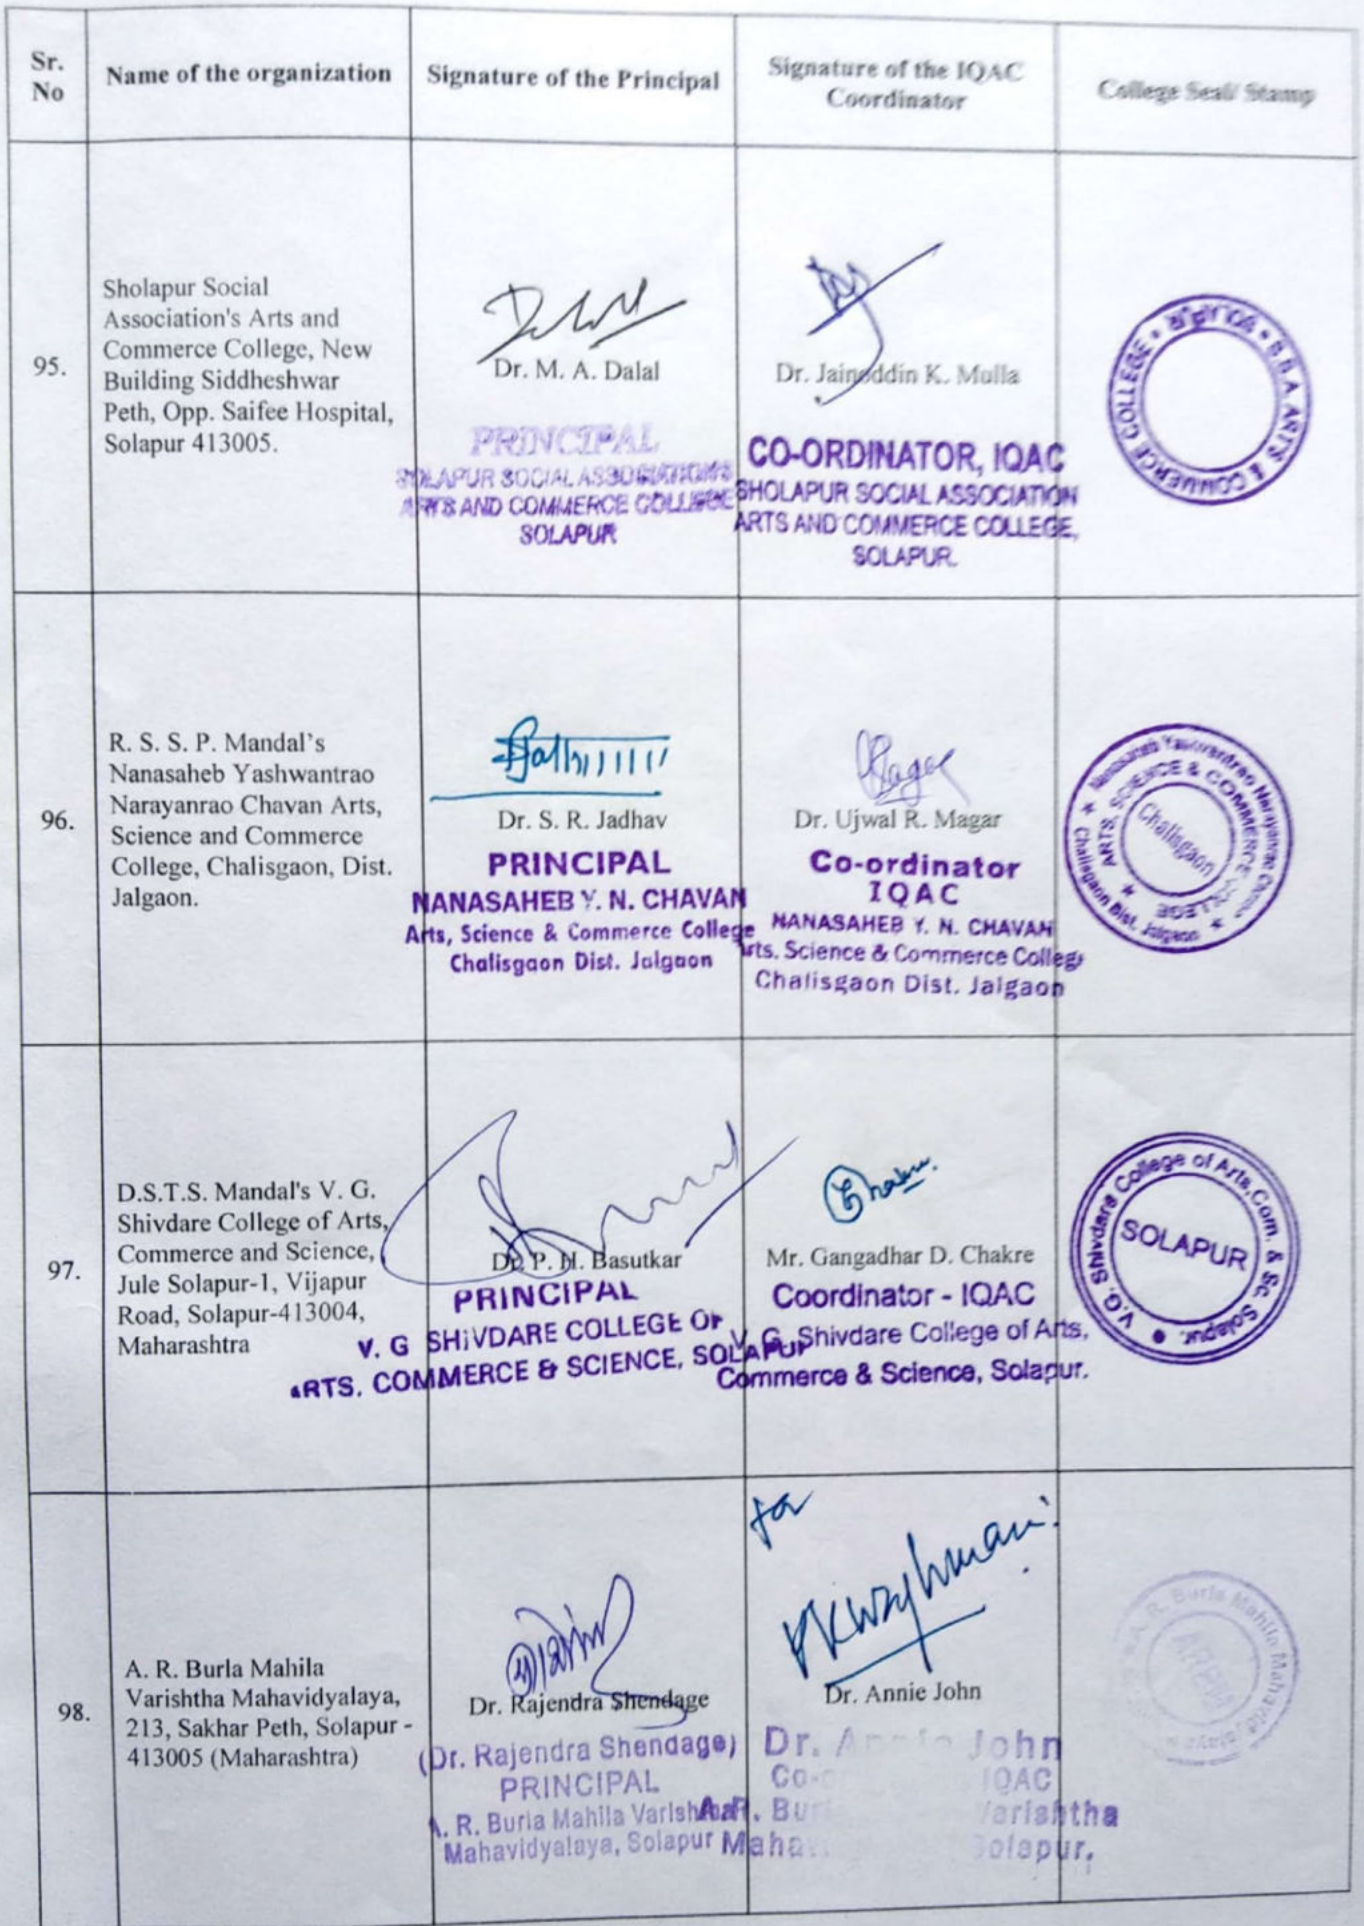 Sr. No
Name of the organization
Signature of the Principal
Signature of the IQAC
Coordinator
College Seal/ Stamp
95.
Sholapur Social
Association's Arts and
Commerce College, New
Building Siddheshwar
Peth, Opp. Saifee Hospital,
Solapur 413005.
Dr. M. A. Dalal
PRINCIPAL
SOLAPUR SOCIAL ASSOCIATION'S
ARTS AND COMMERCE COLLEGE
SOLAPUR
Dr. Jainoddin K. Mulla
CO-ORDINATOR, IQAC
SHOLAPUR SOCIAL ASSOCIATION
ARTS AND COMMERCE COLLEGE,
SOLAPUR.
S.S.A. ARTS & COMMERCE COLLEGE
96.
R. S. S. P. Mandal's
Nanasaheb Yashwantrao
Narayanrao Chavan Arts,
Science and Commerce
College, Chalisgaon, Dist.
Jalgaon.
Dr. S. R. Jadhav
PRINCIPAL
NANASAHEB Y. N. CHAVAN
Arts, Science & Commerce College
Chalisgaon Dist. Jalgaon
Dr. Ujwal R. Magar
Co-ordinator
IQAC
NANASAHEB Y. N. CHAVAN
Arts, Science & Commerce College
Chalisgaon Dist. Jalgaon
ARTS, SCIENCE & COMMERCE COLLEGE
Chalisgaon Dist. Jalgaon
Chalisgaon
97.
D.S.T.S. Mandal's V. G.
Shivdare College of Arts,
Commerce and Science,
Jule Solapur-1, Vijapur
Road, Solapur-413004,
Maharashtra
Dr. P. N. Basutkar
PRINCIPAL
V. G SHIVDARE COLLEGE OF
ARTS, COMMERCE & SCIENCE, SOLAPUR
Chakre
Mr. Gangadhar D. Chakre
Coordinator - IQAC
V. G. Shivdare College of Arts,
Commerce & Science, Solapur.
V.G. Shivdare College of Arts, Com. & Sc. Solapur.
SOLAPUR
98.
A. R. Burla Mahila
Varishtha Mahavidyalaya,
213, Sakhar Peth, Solapur -
413005 (Maharashtra)
Dr. Rajendra Shendage
(Dr. Rajendra Shendage)
PRINCIPAL
A. R. Burla Mahila Varishtha
Mahavidyalaya, Solapur
for
Dr. Annie John
Dr. Annie John
IQAC
A. R. Bur Varishtha
Solapur.
A. R. Burla Mahila Mahavidyalaya